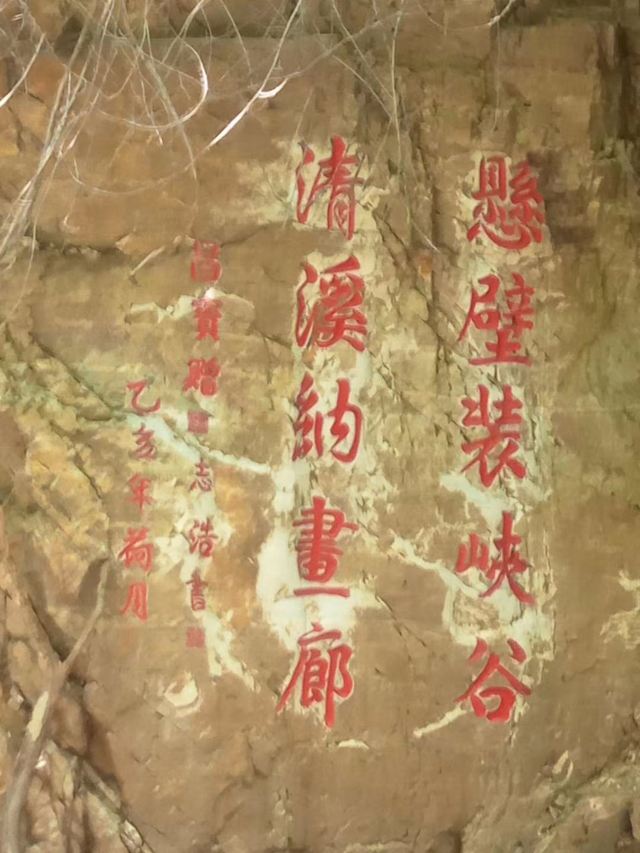 懸壁装峽谷
清溪納畫廊
昌贊贈 志浩書
乙亥年荷月